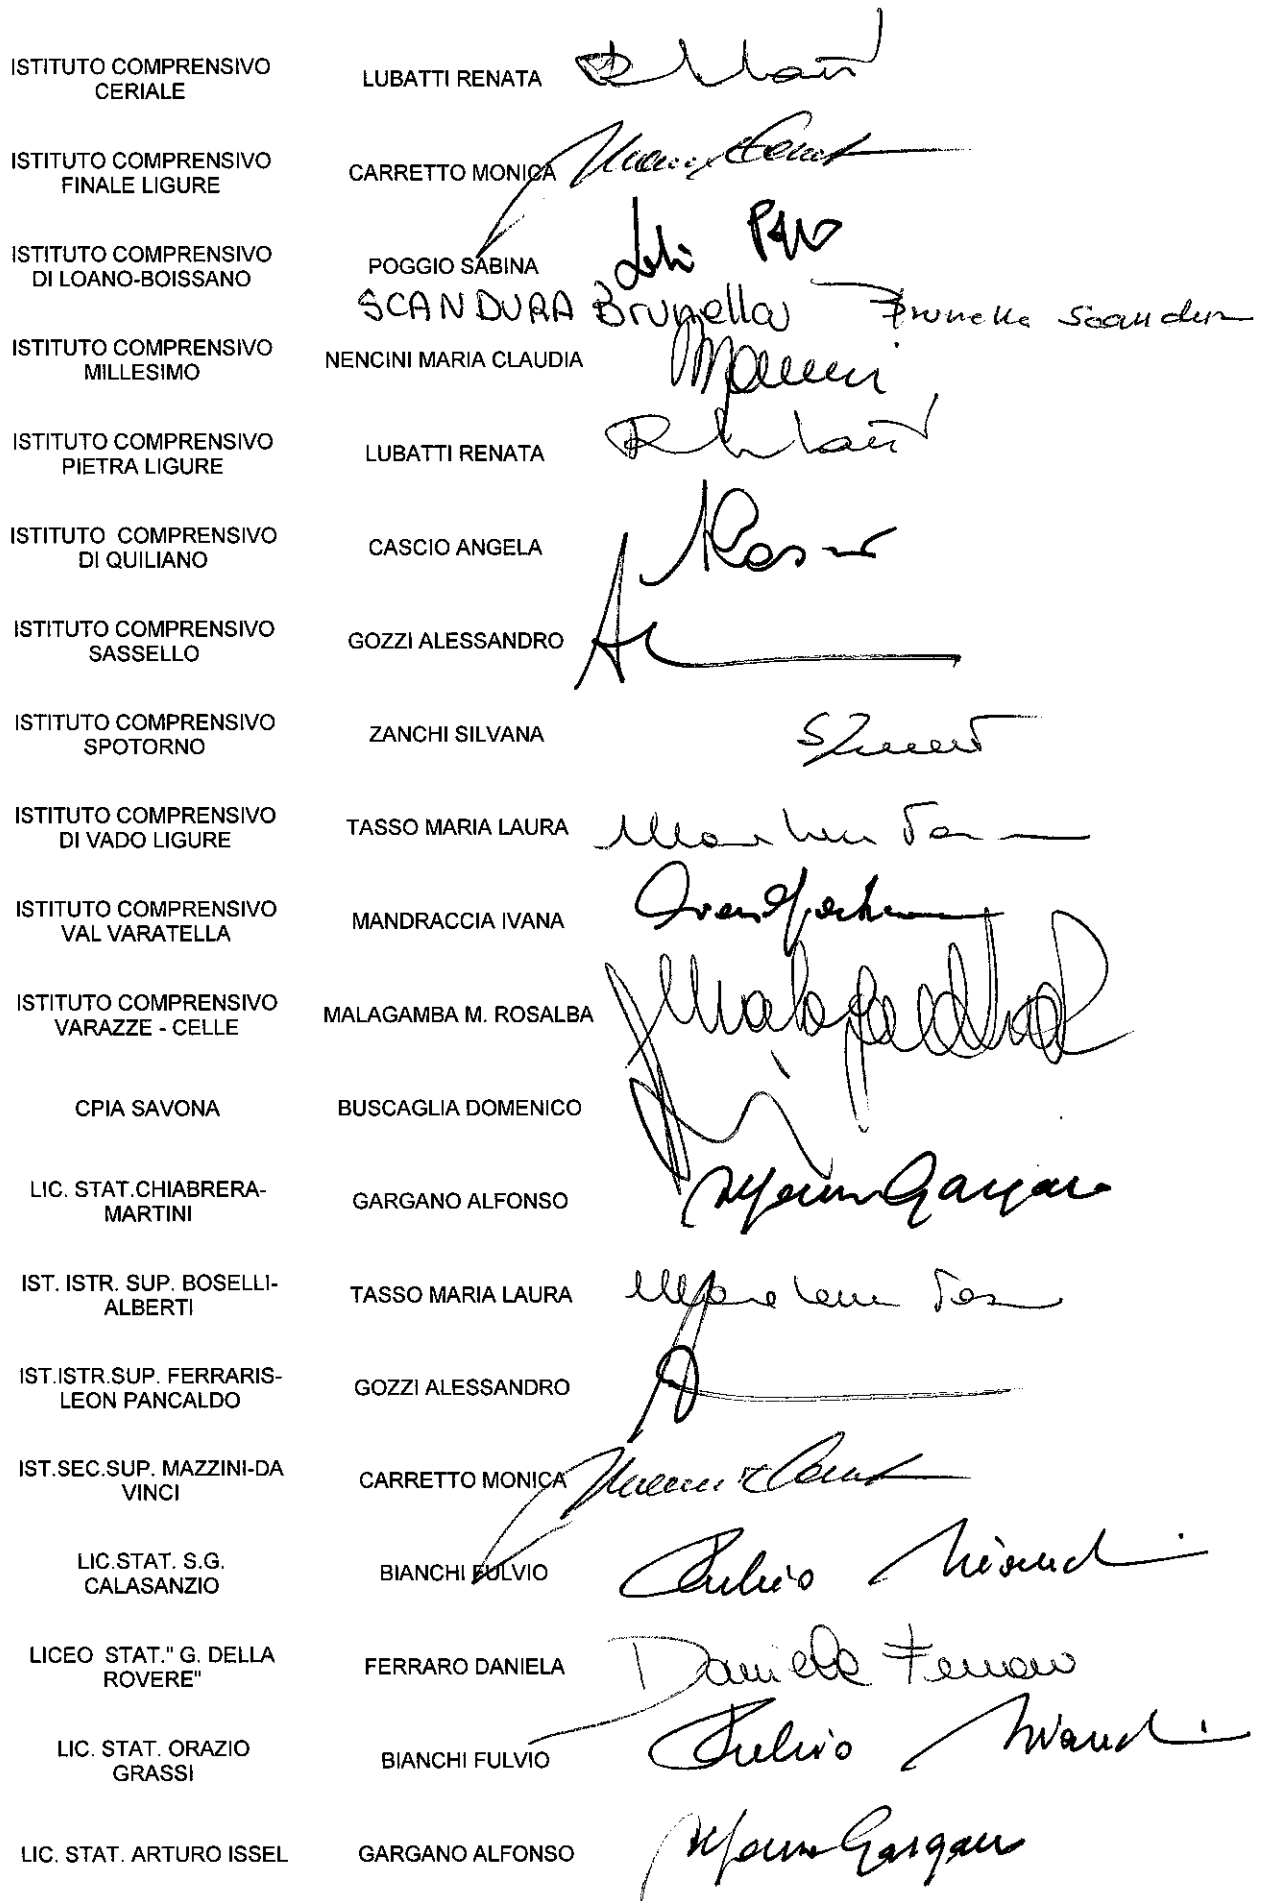 ISTITUTO COMPRENSIVO
CERIALE
LUBATTI RENATA
ISTITUTO COMPRENSIVO
FINALE LIGURE
CARRETTO MONICA
ISTITUTO COMPRENSIVO
DI LOANO-BOISSANO
POGGIO SABINA
SCANDURA Brunella Brunella Scandura
ISTITUTO COMPRENSIVO
MILLESIMO
NENCINI MARIA CLAUDIA
ISTITUTO COMPRENSIVO
PIETRA LIGURE
LUBATTI RENATA
ISTITUTO COMPRENSIVO
DI QUILIANO
CASCIO ANGELA
ISTITUTO COMPRENSIVO
SASSELLO
GOZZI ALESSANDRO
ISTITUTO COMPRENSIVO
SPOTORNO
ZANCHI SILVANA
ISTITUTO COMPRENSIVO
DI VADO LIGURE
TASSO MARIA LAURA
ISTITUTO COMPRENSIVO
VAL VARATELLA
MANDRACCIA IVANA
ISTITUTO COMPRENSIVO
VARAZZE - CELLE
MALAGAMBA M. ROSALBA
CPIA SAVONA
BUSCAGLIA DOMENICO
LIC. STAT.CHIABRERA-
MARTINI
GARGANO ALFONSO
IST. ISTR. SUP. BOSELLI-
ALBERTI
TASSO MARIA LAURA
IST.ISTR.SUP. FERRARIS-
LEON PANCALDO
GOZZI ALESSANDRO
IST.SEC.SUP. MAZZINI-DA
VINCI
CARRETTO MONICA
LIC.STAT. S.G.
CALASANZIO
BIANCHI FULVIO
Fulvio Bianchi
LICEO STAT." G. DELLA
ROVERE"
FERRARO DANIELA
Daniela Ferraro
LIC. STAT. ORAZIO
GRASSI
BIANCHI FULVIO
Fulvio Bianchi
LIC. STAT. ARTURO ISSEL
GARGANO ALFONSO